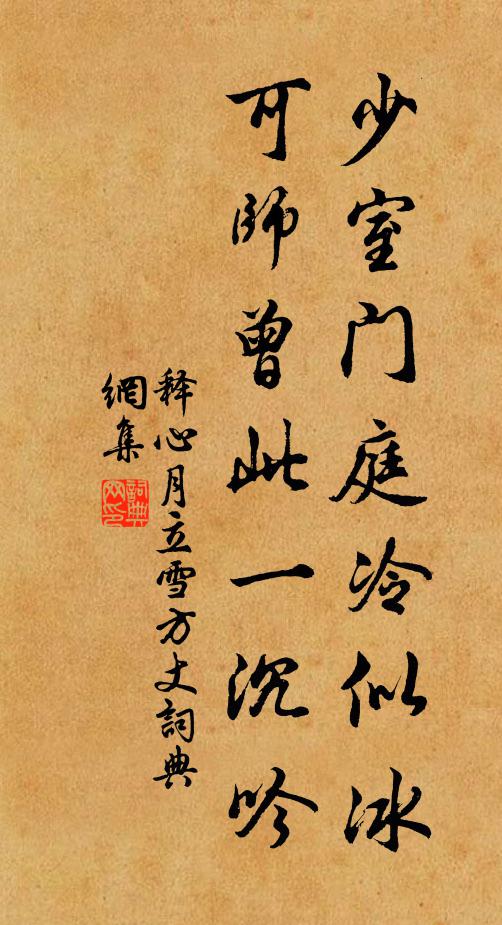 少室門庭冷似冰
可師曾此一沉吟
釋心月立雪方丈詞典
網集
詞典網印